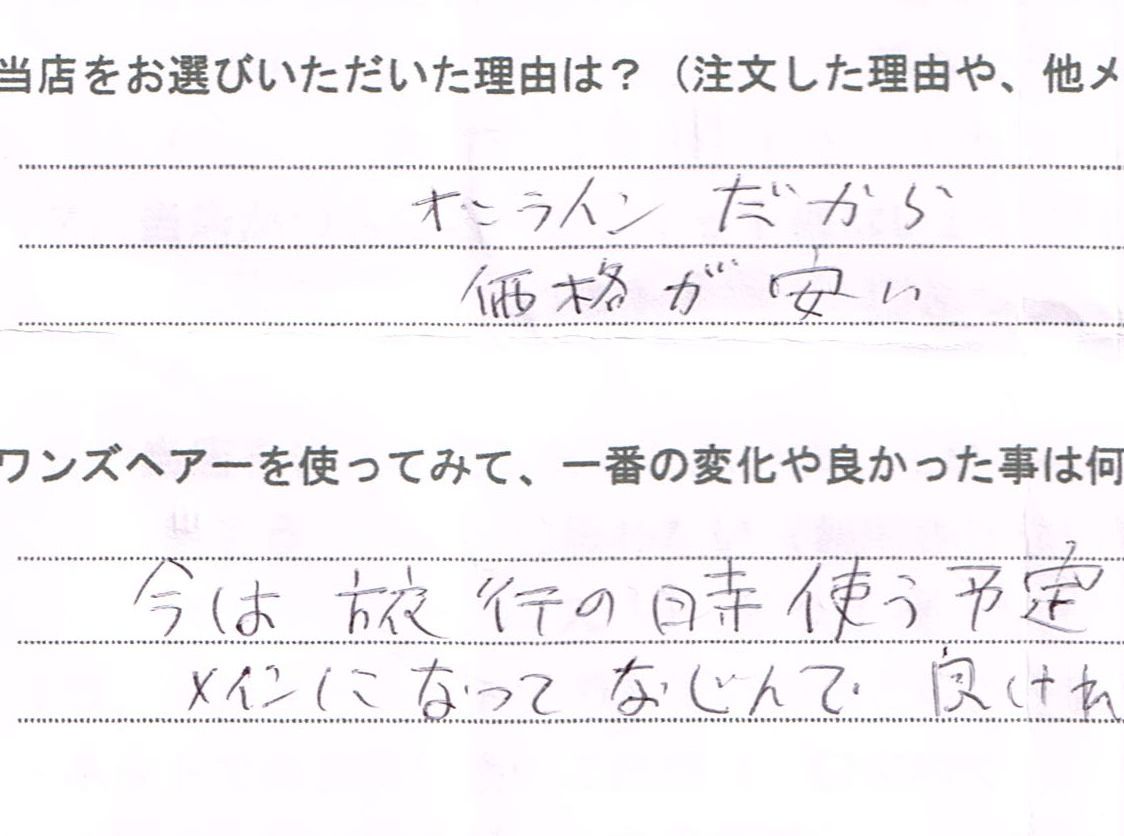 当店をお選びいただいた理由は？（注文した理由や、他メ
オンラインだから
価格が安い
ワンズヘアーを使ってみて、一番の変化や良かった事は何
今は旅行の時使う予定
メインになってなじんで良けれ